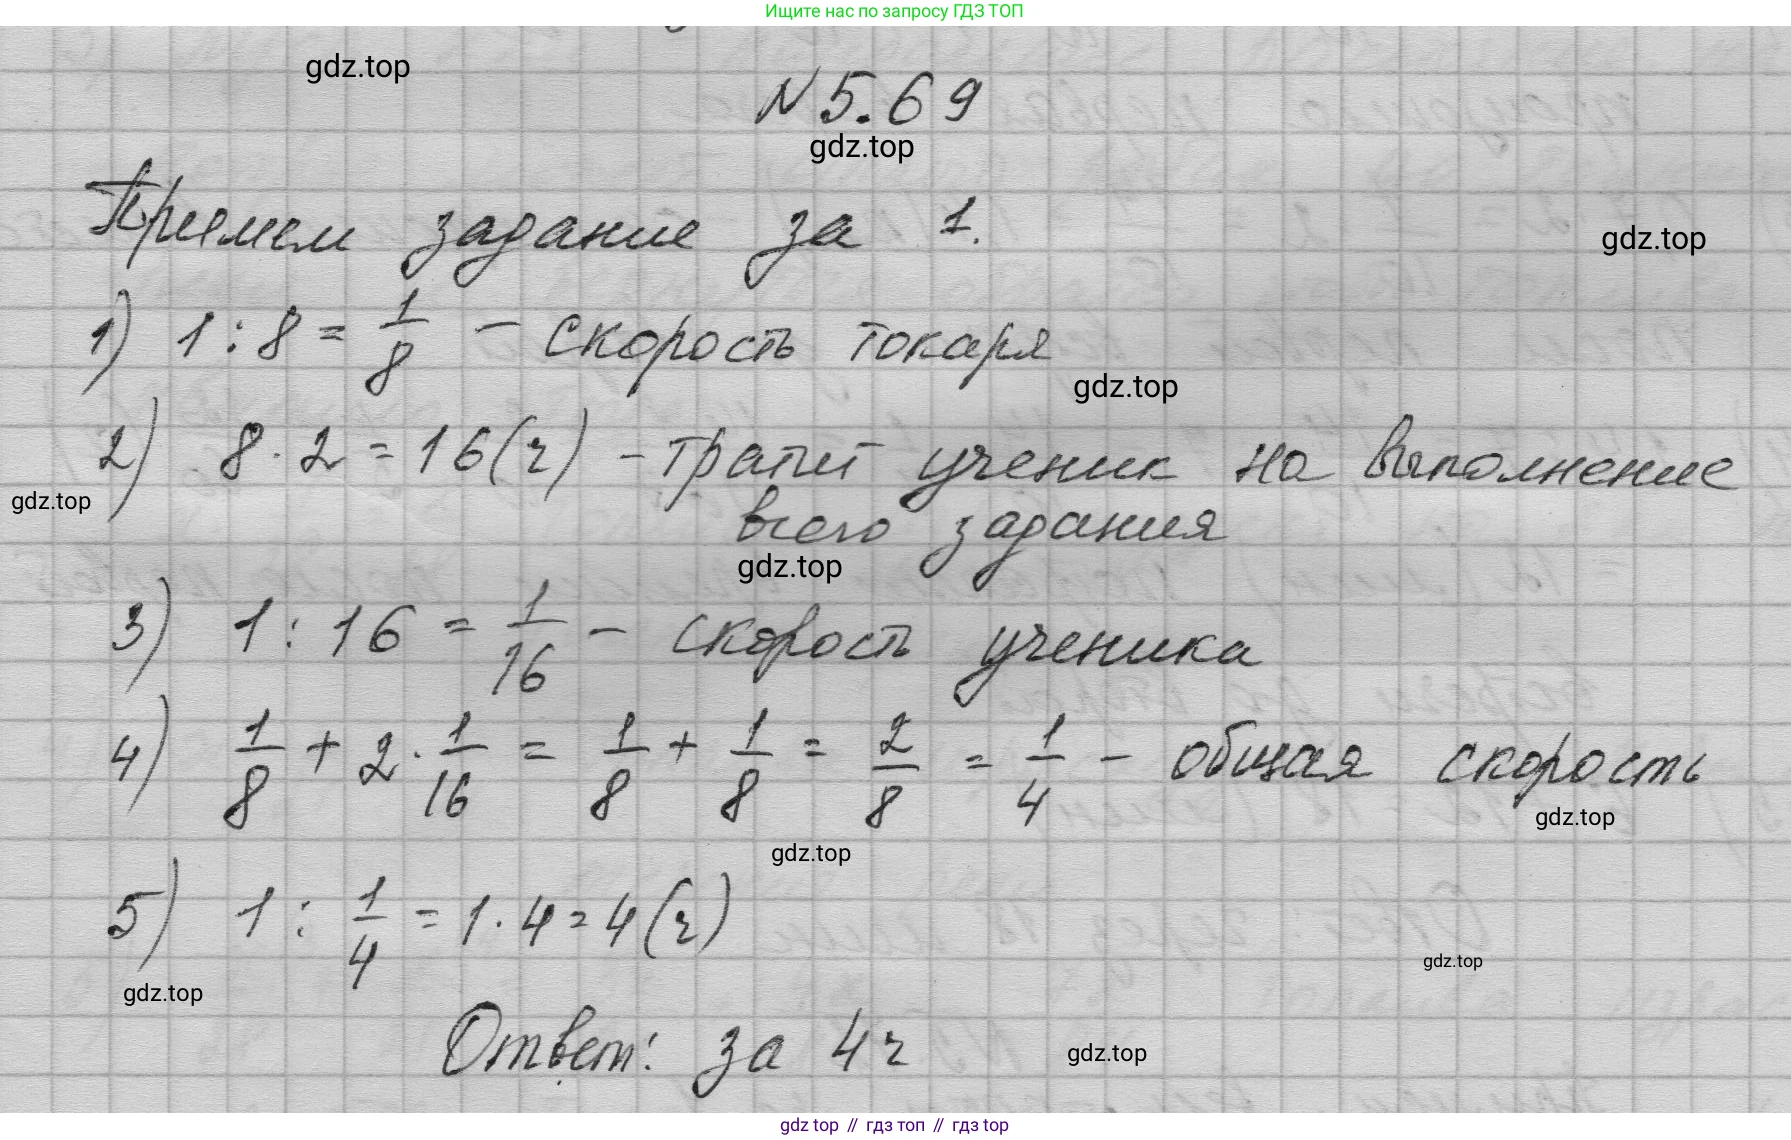 Ищите нас по запросу ГДЗ ТОП
gdz.top
N 5.69
gdz.top
Примем задание за 1.
gdz.top
1) 1 : 8 = 1/8 - скорость токаря
gdz.top
2) 8 · 2 = 16 (ч) - тратит ученик на выполнение
gdz.top
всего задания
gdz.top
3) 1 : 16 = 1/16 - скорость ученика
4) 1/8 + 2 · 1/16 = 1/8 + 1/8 = 2/8 = 1/4 - общая скорость
gdz.top
gdz.top
5) 1 : 1/4 = 1 · 4 = 4 (ч)
gdz.top
gdz.top
Ответ: за 4 ч
gdz.top
gdz top // гдз топ // гдз top